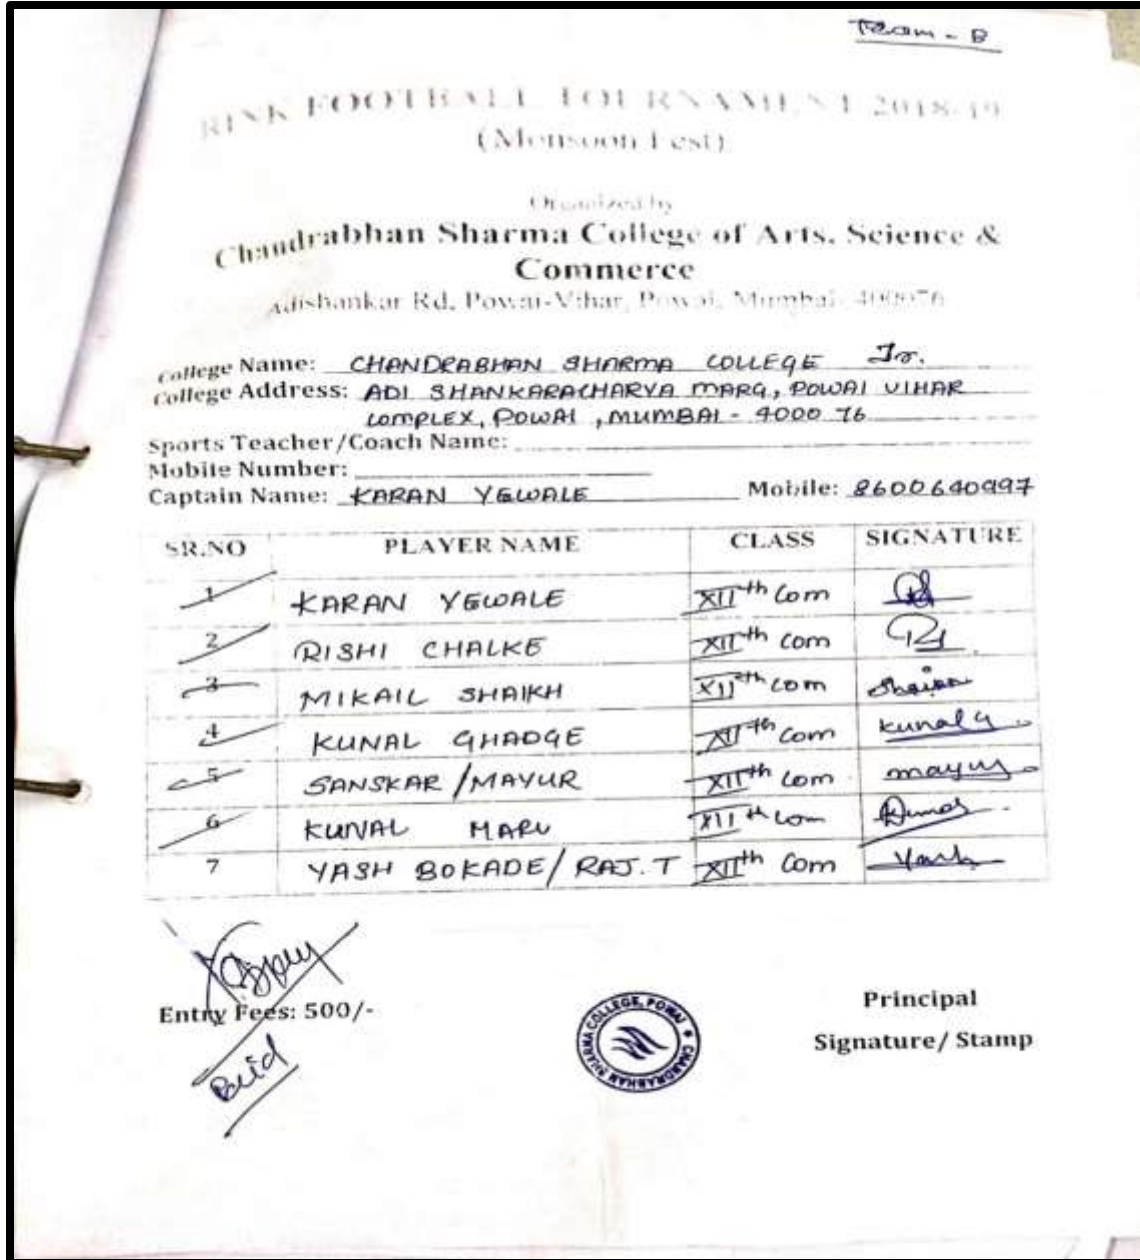 Team - B
RINK FOOTBALL TOURNAMENT 2018-19
(Monsoon Fest)
Organized by
Chandrabhan Sharma College of Arts, Science &
Commerce
Adishankar Rd, Powai-Vihar, Powai, Mumbai- 400076
College Name: CHANDRABHAN SHARMA COLLEGE Jr.
College Address: ADI SHANKARACHARYA MARG, POWAI VIHAR
COMPLEX, POWAI, MUMBAI - 4000 76
Sports Teacher/Coach Name:
Mobile Number:
Captain Name: KARAN YEWALE Mobile: 8600640997
SR.NO PLAYER NAME CLASS SIGNATURE
1 KARAN YEWALE XIIth Com
2 RISHI CHALKE XIIth Com
3 MIKAIL SHAIKH XIIth Com
4 KUNAL GHADGE XIIth Com Kunal G
5 SANSKAR/MAYUR XIIth Com mayur
6 KUNAL MARU XIIth Com
7 YASH BOKADE/ RAJ.T XIIth Com Yash
Entry Fees: 500/-
Paid
CHANDRABHAN SHARMA COLLEGE, POWAI
Principal
Signature/ Stamp